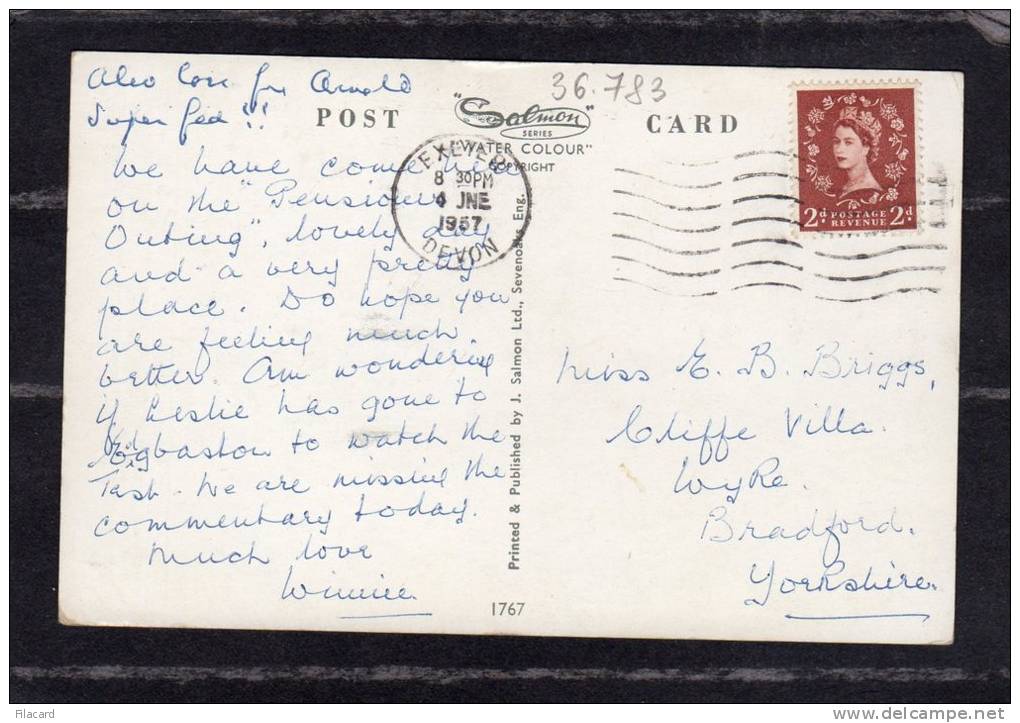 Also
Super !!
We have come here
on the "Pensioners
Outing", lovely day
and a very pretty
place. Do hope you
are feeling much
better. Am wondering
if Leslie has gone to
Edgbaston to watch the
Test. We are missing the
commentary today.
Much love
Winnie.
36.783
POST "Salmon" CARD
SERIES
"WATER COLOUR"
COPYRIGHT
EXETER
8 30PM
4 JNE
1957
DEVON
2d POSTAGE REVENUE 2d
Printed & Published by J. Salmon Ltd., Sevenoaks Eng.
Miss E. B. Briggs,
Cliffe Villa.
Wyke.
Bradford.
Yorkshire.
1767
Filacard